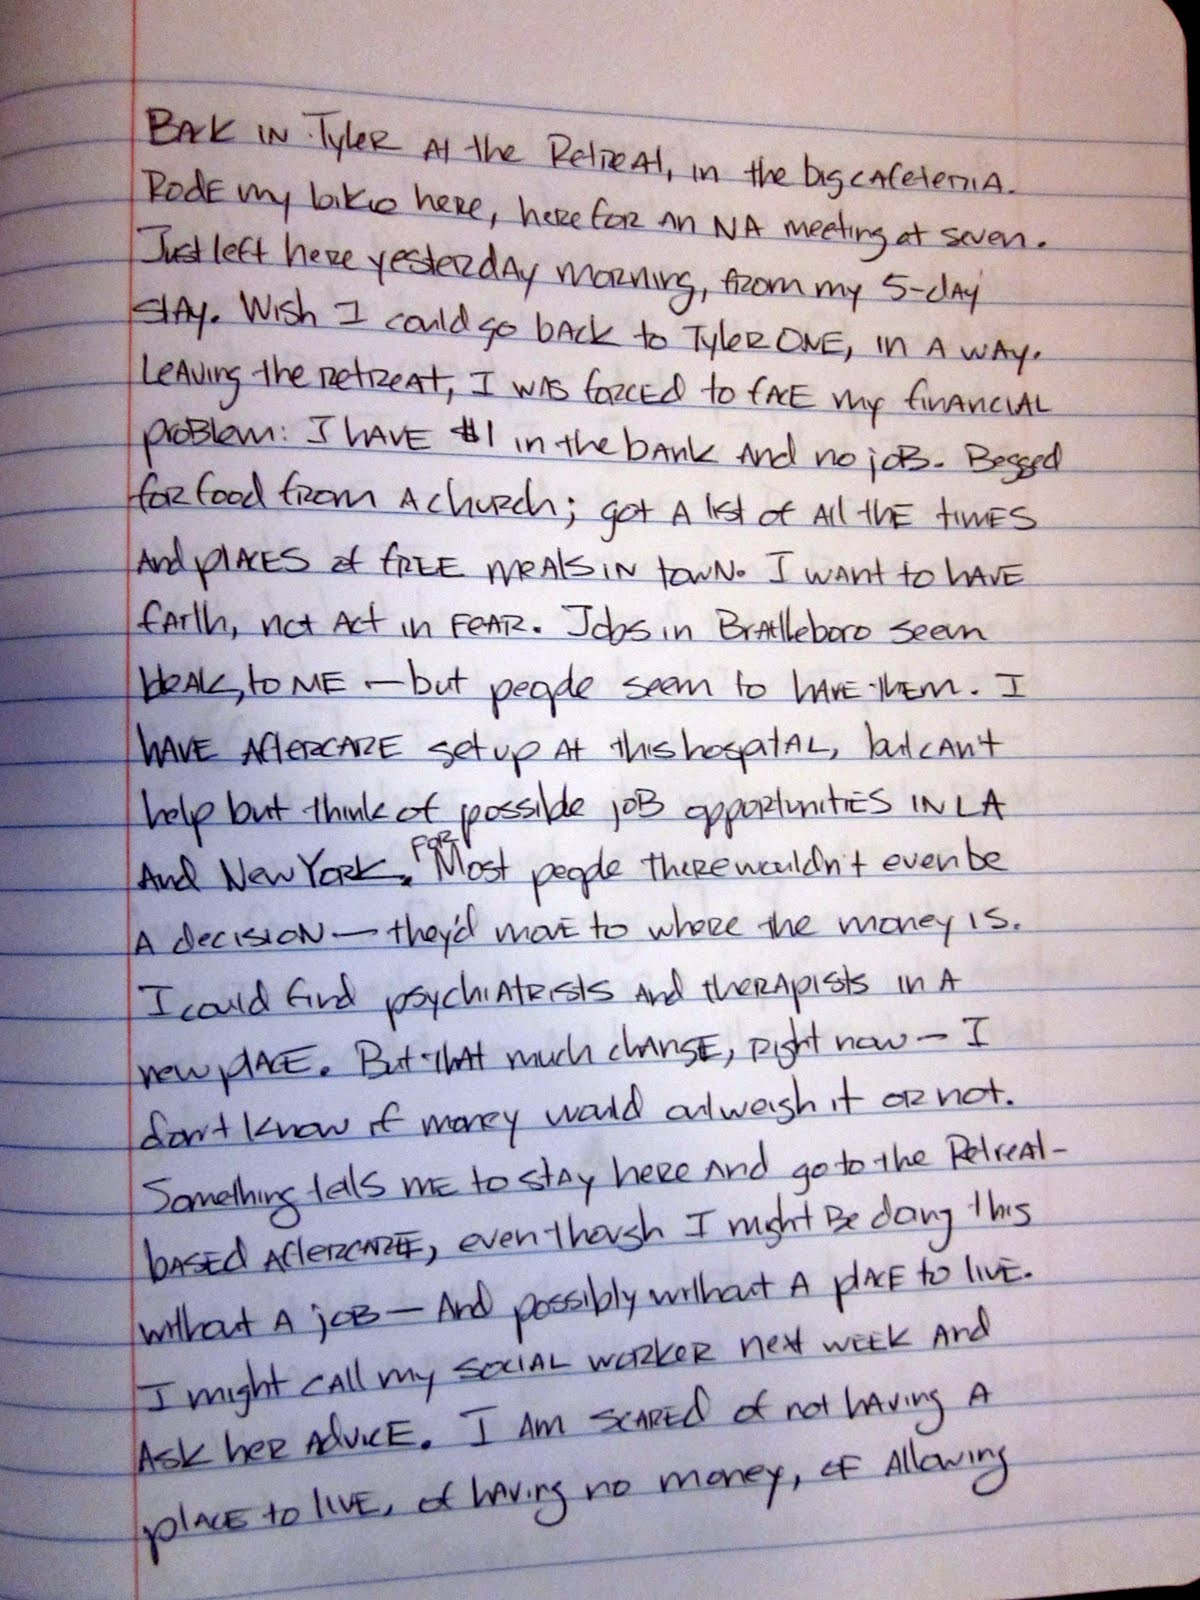 Back in Tyler at the Retreat, in the big cafeteria.
Rode my bike here, here for an NA meeting at seven.
Just left here yesterday morning, from my 5-day
stay. Wish I could go back to Tyler ONE, in a way.
Leaving the retreat, I was forced to face my financial
problem: I have $1 in the bank and no job. Begged
for food from a church; got a list of all the times
and places of free meals in town. I want to have
faith, not act in fear. Jobs in Brattleboro seem
bleak, to me — but people seem to have them. I
have aftercare set up at this hospital, but can't
help but think of possible job opportunities in LA
and New York. For most people there wouldn't even be
a decision — they'd move to where the money is.
I could find psychiatrists and therapists in a
new place. But that much change, right now — I
don't know if money would outweigh it or not.
Something tells me to stay here and go to the Retreat-
based aftercare, even though I might be doing this
without a job — and possibly without a place to live.
I might call my social worker next week and
ask her advice. I am scared of not having a
place to live, of having no money, of allowing